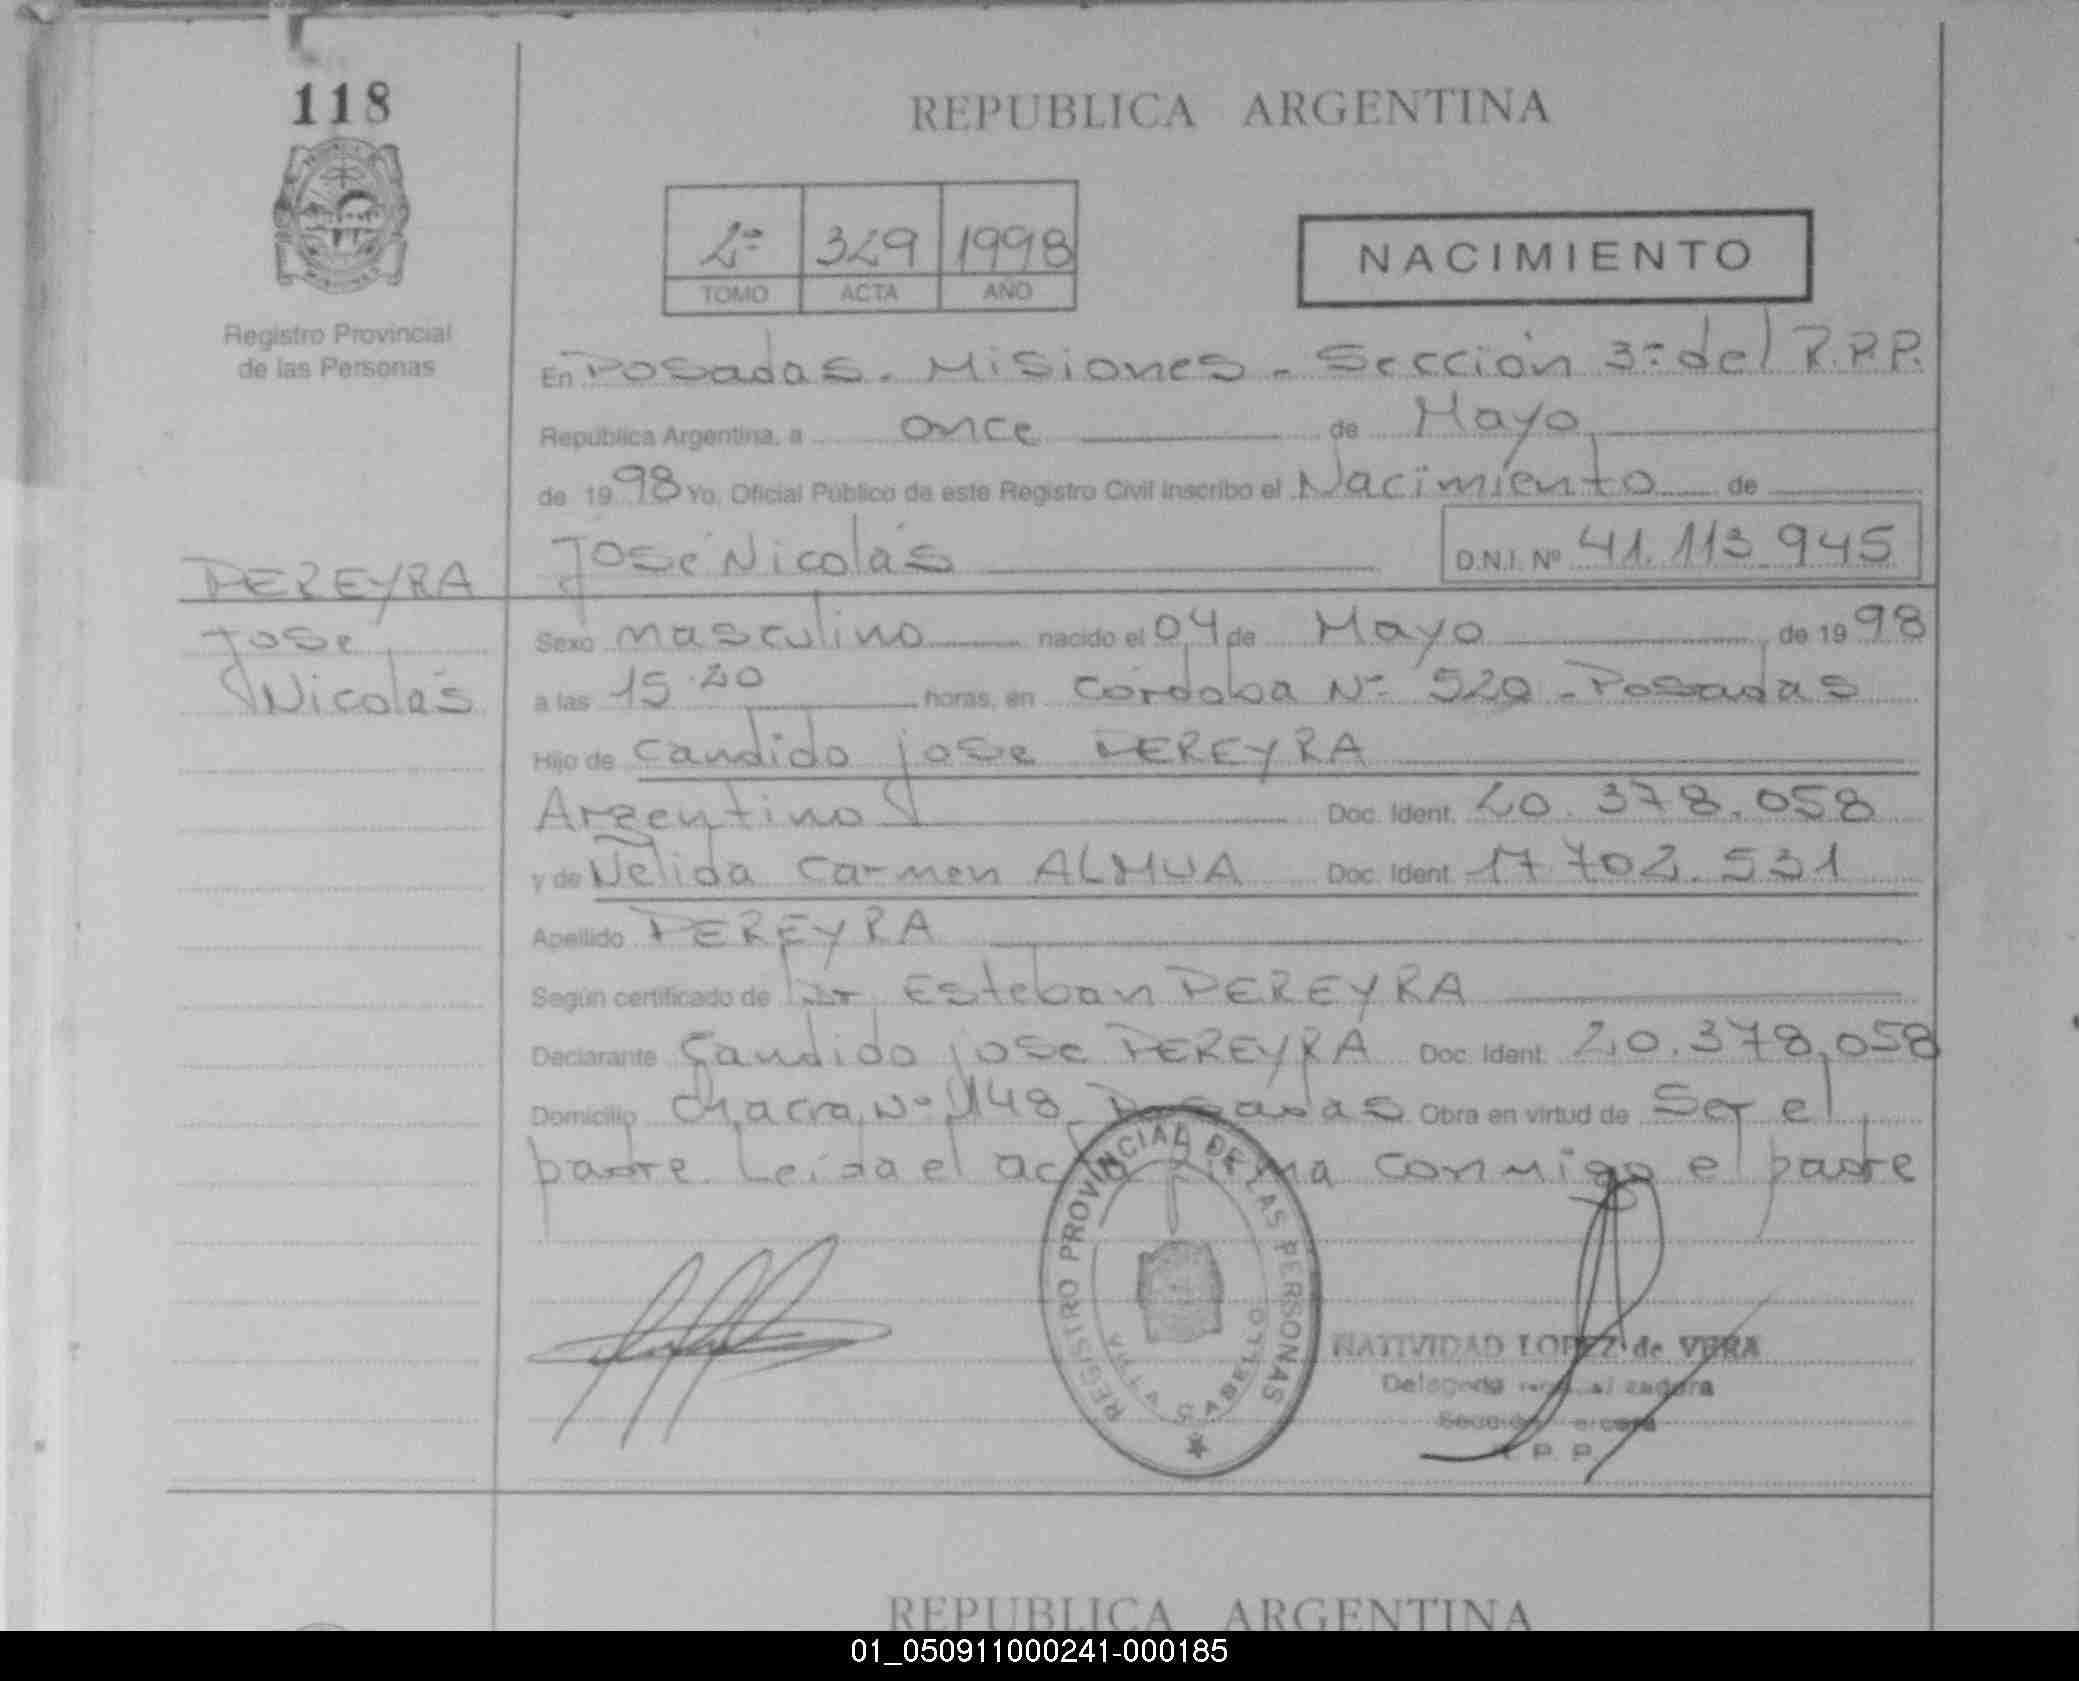 118
REPUBLICA ARGENTINA
2º 329 1998
TOMO ACTA AÑO
NACIMIENTO
Registro Provincial
de las Personas
En Posadas. Misiones - Sección 3º del R.P.P.
República Argentina, a once de Mayo
de 1998 Yo, Oficial Público de este Registro Civil inscribo el Nacimiento de
José Nicolás D.N.I. Nº 41.113.945
PEREYRA
José
Nicolás
Sexo masculino nacido el 04 de Mayo de 1998
a las 15.20 horas, en Córdoba Nº 520 - Posadas
Hijo de Candido jose PEREYRA
Argentino Doc. Ident. 20.378.058
y de Nelida Carmen ALMUA Doc. Ident. 17.702.531
Apellido PEREYRA
Según certificado de Dr Esteban PEREYRA
Declarante Candido jose PEREYRA Doc. Ident. 20.378.058
Domicilio Chacra Nº 148 Posadas Obra en virtud de Ser el
padre. Leída el acta firma conmigo el padre
REGISTRO PROVINCIAL DE LAS PERSONAS
NATIVIDAD LOPEZ de VERA
Delegada
P. P.
REPUBLICA ARGENTINA
01_050911000241-000185